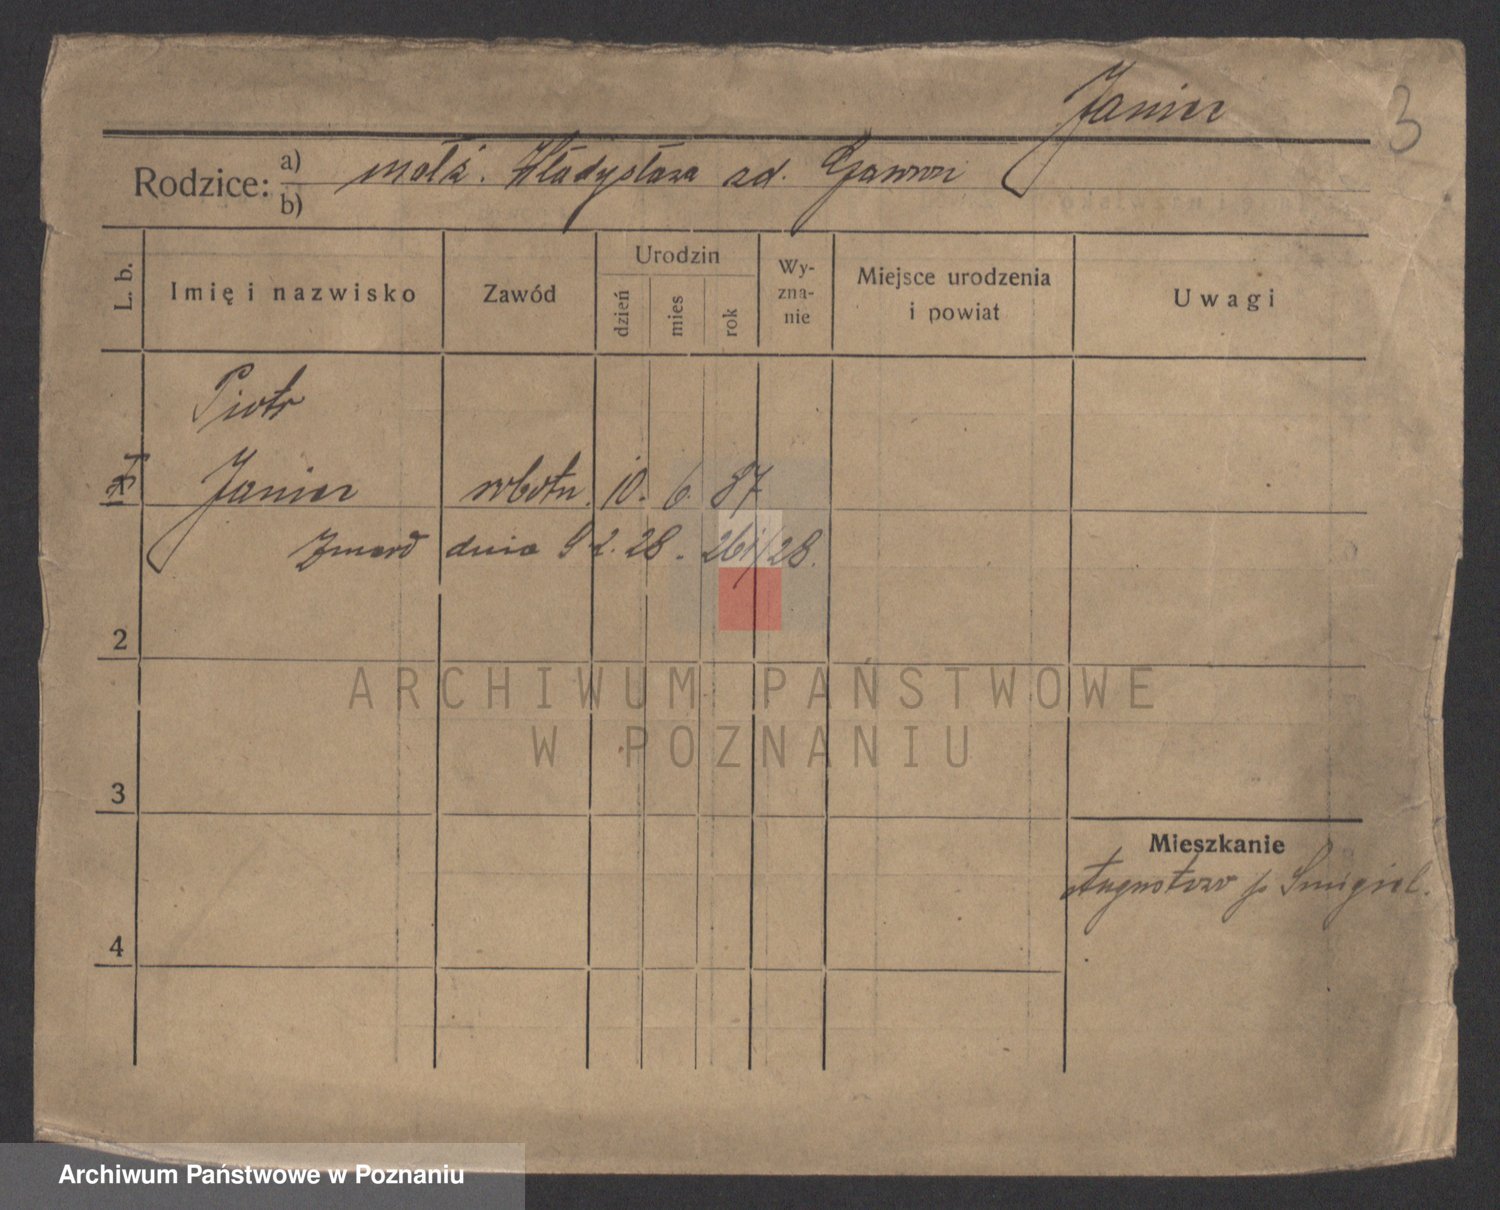 Janier
3
Rodzice: a) małż. Władysława zd.
b)
L. b.
Imię i nazwisko
Zawód
Urodzin
dzień
mies
rok
Wy-
zna-
nie
Miejsce urodzenia
i powiat
Uwagi
Piotr
Janier robotn. 10. 6. 87
Zmarł dnia 9 2. 28. 261/28.
2
ARCHIWUM PAŃSTWOWE
W POZNANIU
3
Mieszkanie
p. Śmigiel.
4
Archiwum Państwowe w Poznaniu